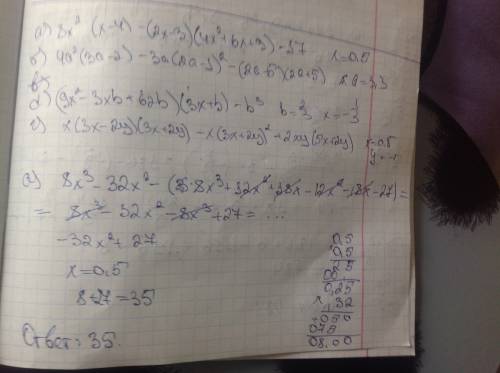 а) 8x² (x-4) - (2x-3)(4x²+6x+9) - 37 x=0,5
б) 4a²(3a-2) - 3a(2a-1)² - (2a-5)(2a+5)
d) (9x²-3xb+b2b)(3x+b) - b³ b=2/3 x=-1/3
e) x(3x-2y)(3x+2y) - x(3x+2y)²+2xy(5x+2y) x=0,5
y=-1
a) 8x³ - 32x² - (8x³+12x²+18x-12x²-18x-27)=
= 8x³ - 32x² - 8x³ + 27 = ...
-32x² + 27
x=0,5
8+27=35
Ответ: 35.
0,5
0,5
25
0,25
x 32
050
075
08.00